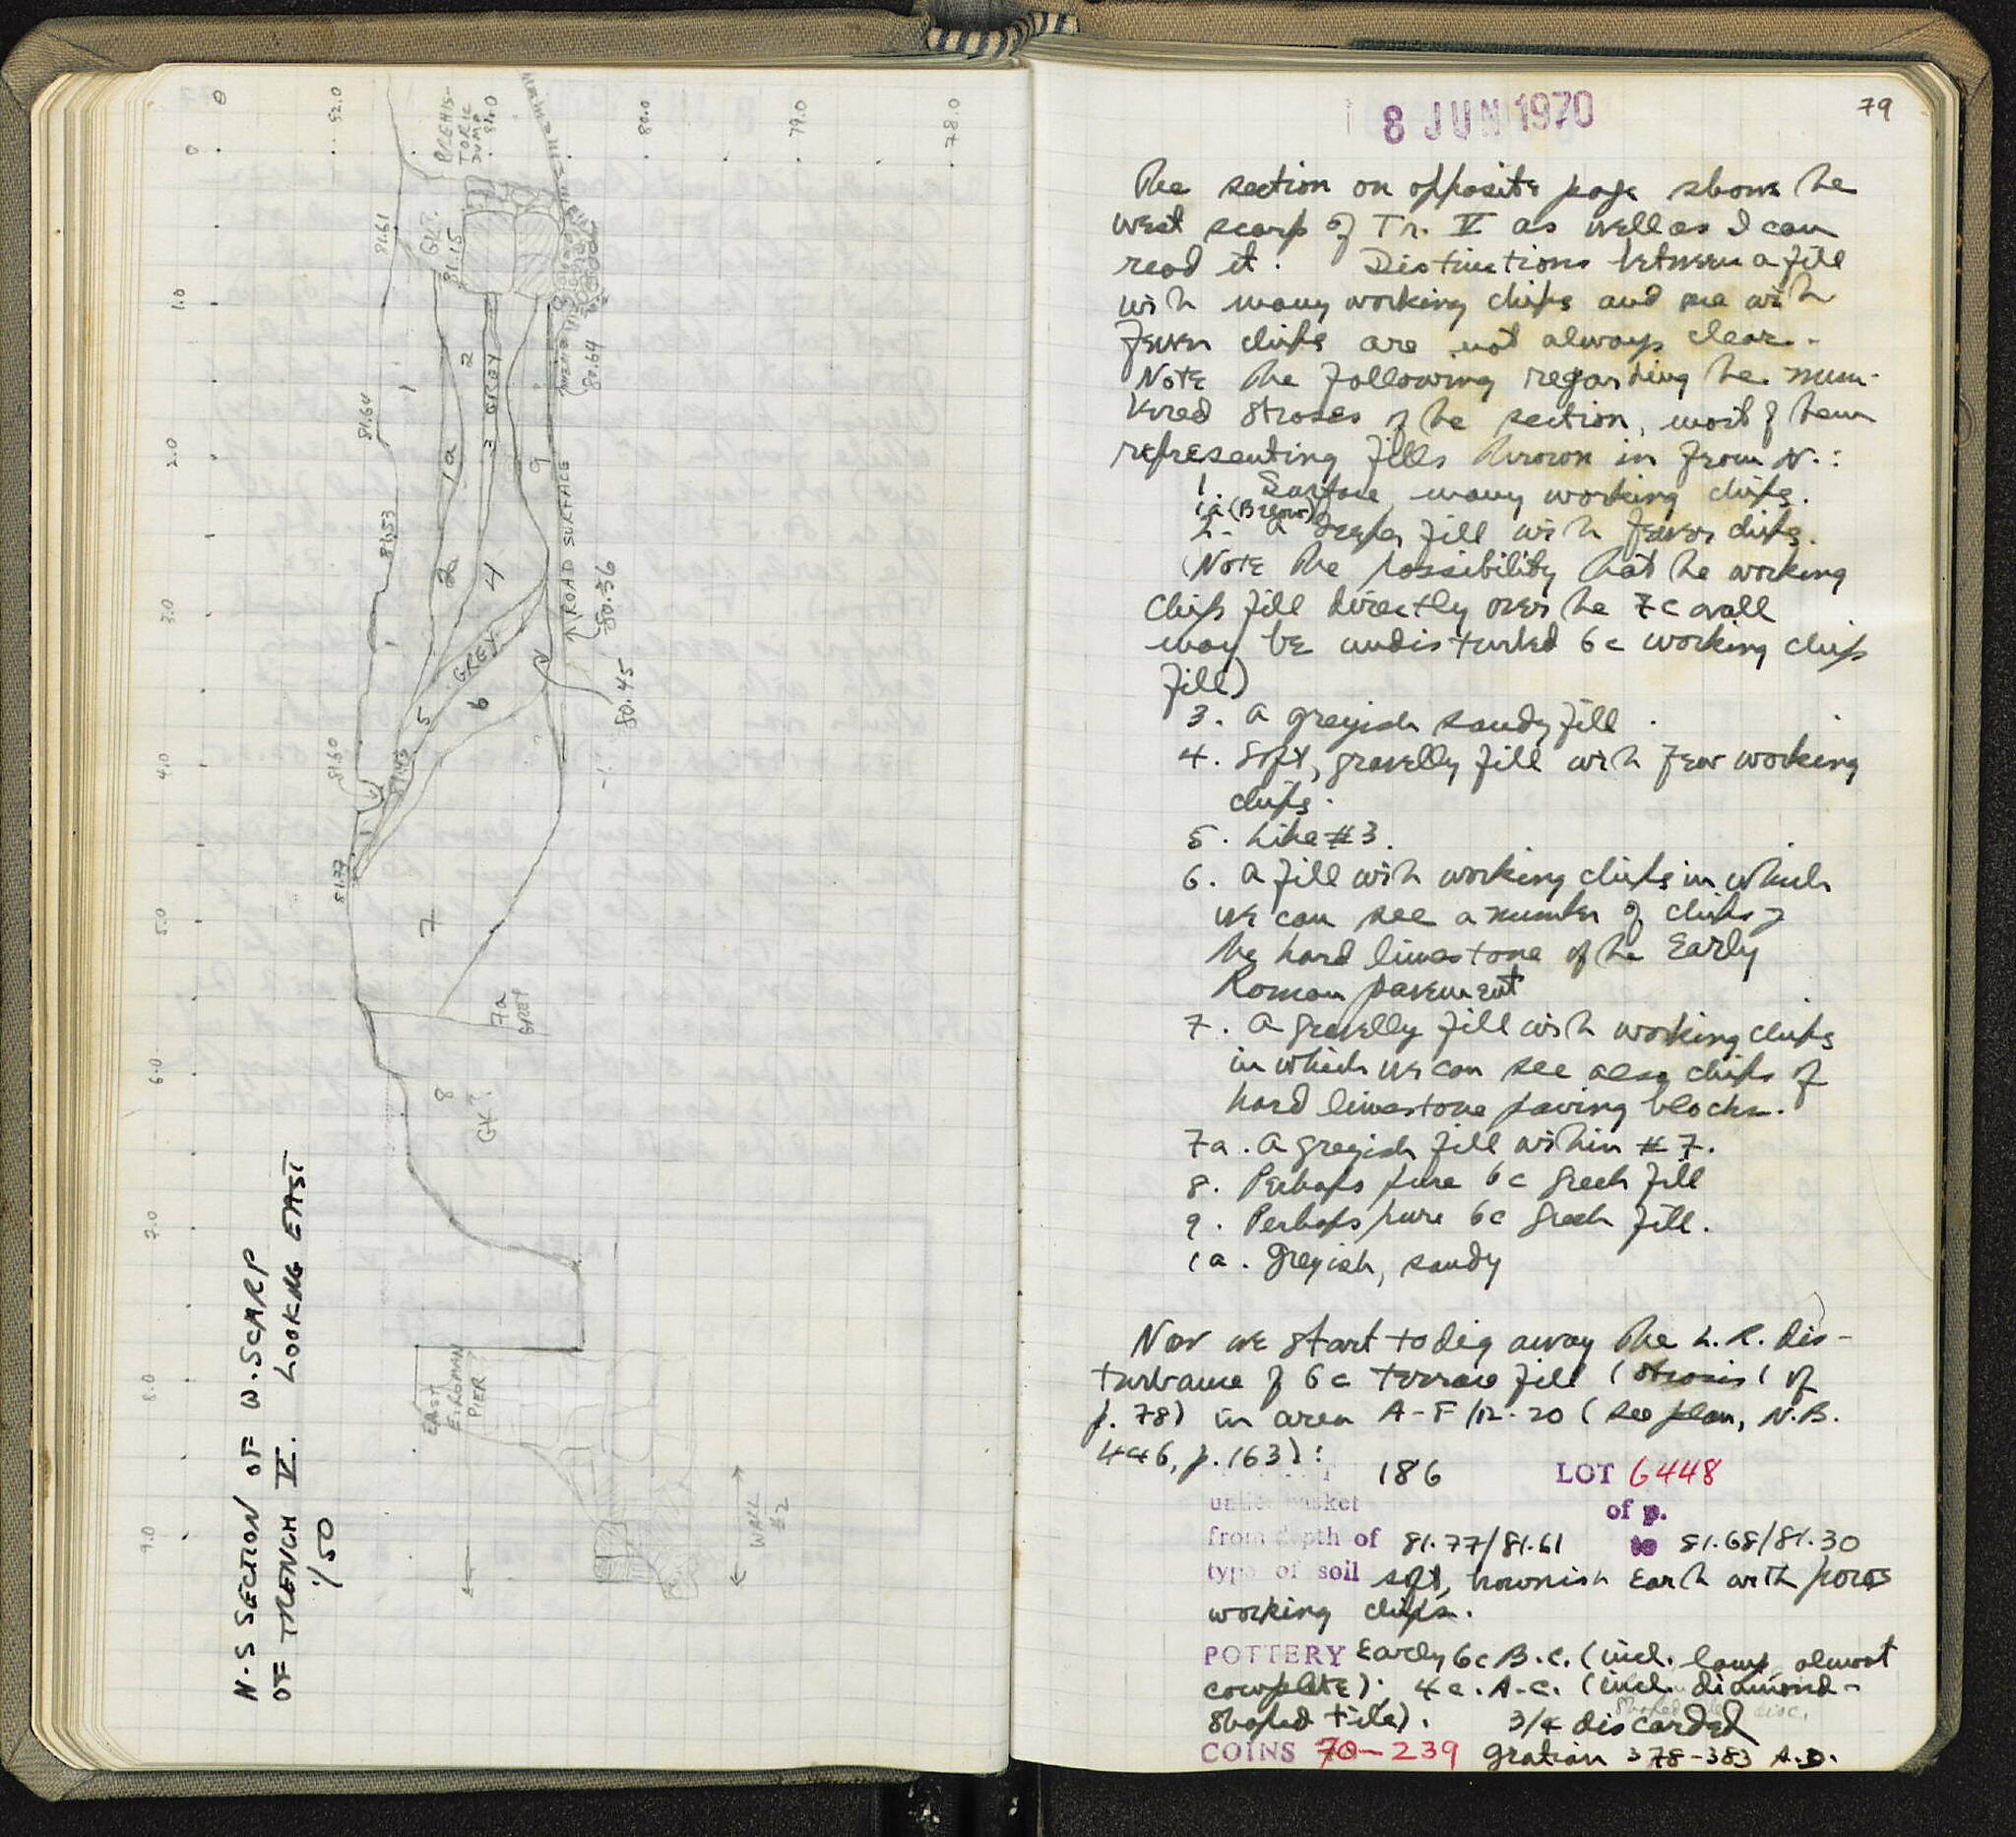 N-S SECTION OF W. SCARP
OF TRENCH V. LOOKING EAST
1/50
0
82.0
81.0
80.0
79.0
78.0
0
1.0
2.0
3.0
4.0
5.0
6.0
7.0
8.0
9.0
PREHIS-
TORIC
DUMP
81.61
GK?
81.15
81.64
1
2
3 GREY
1a
9
80.64
81.53
2
4
ROAD SURFACE
80.36
GREY
5
6
80.45
81.60
81.43
81.77
7
7a
GREY
8
GK?
EAST
E. ROMAN
PIER
WALL
#2
8 JUN 1970
79
The section on opposite page shows the
west scarp of Tr. V as well as I can
read it. Distinctions between a fill
with many working chips and one with
fewer chips are not always clear.
Note the following regarding the num-
bered stroses of the section, most of them
representing fills thrown in from N.:
1. Surface, many working chips.
1a (Below)
2. A deeper fill with fewer chips.
(Note the possibility that the working
chips fill directly over the 7c wall
may be undisturbed 6c working chip
fill)
3. A greyish sandy fill
4. Soft, gravelly fill with few working
chips.
5. Like #3.
6. A fill with working chips in which
we can see a number of chips of
the hard limestone of the Early
Roman pavement
7. A gravelly fill with working chips
in which we can see also chips of
hard limestone paving blocks.
7a. A greyish fill within #7.
8. Perhaps pure 6c Greek fill
9. Perhaps pure 6c Greek fill.
1a. Greyish, sandy
Now we start to dig away the L.R. dis-
turbance of 6c terrace fill (strosis 1 of
p. 78) in area A-F/12-20 (see plan, N.B.
446, p. 163):
186 LOT 6448
unit basket of p.
from depth of 81.77/81.61 to 81.68/81.30
type of soil soft, brownish earth with poros
working chips.
POTTERY Early 6c B.C. (incl. lamp, almost
complete). 4c. A.C. (incl. diamond-
shaped tile). 3/4 discarded
COINS 70-239 Gratian 378-383 A.D.